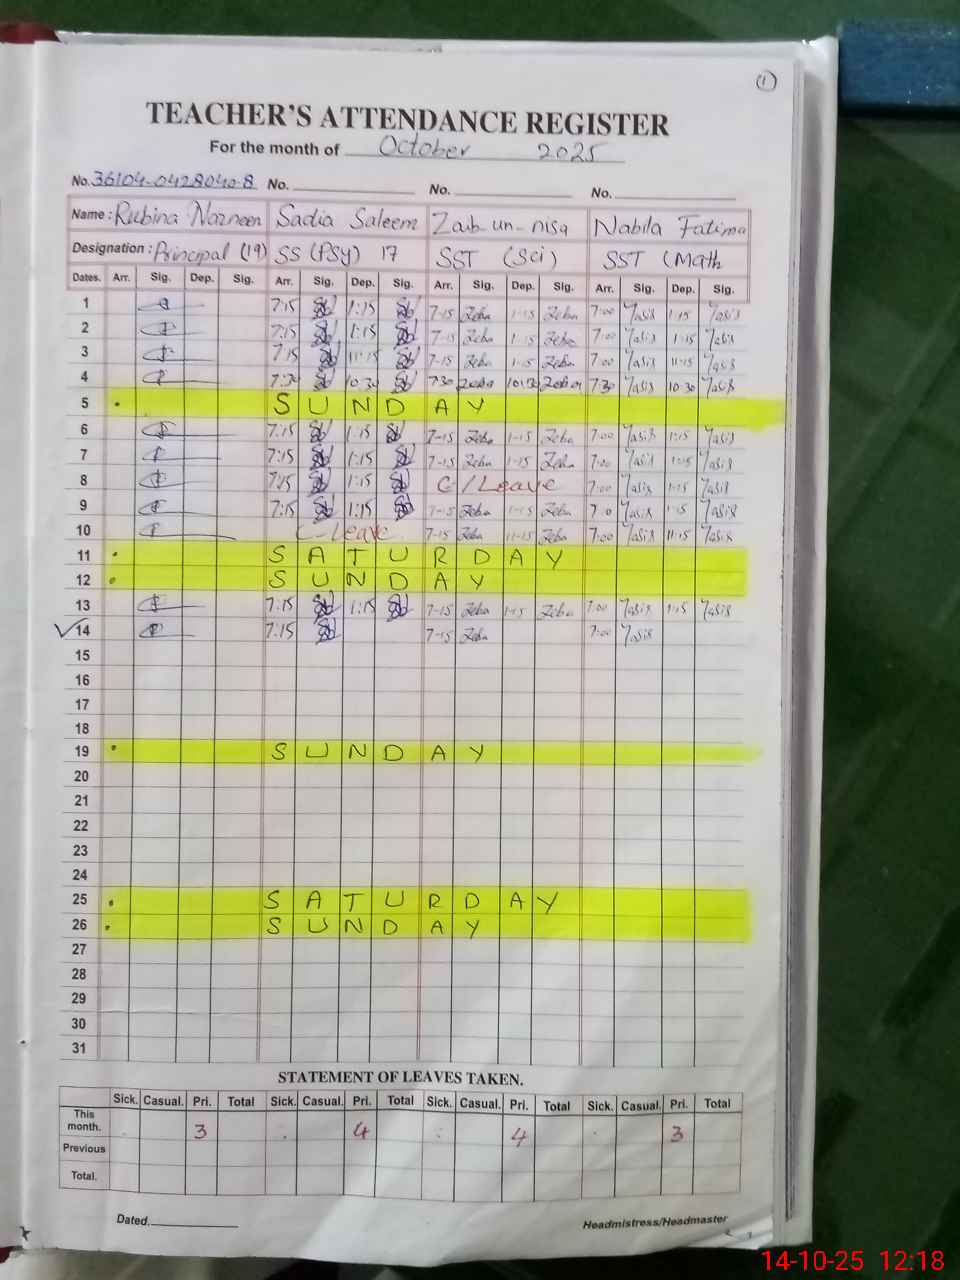 1
TEACHER'S ATTENDANCE REGISTER
For the month of October 2025
No. 36104-0428040-8 No. No. No.
Name : Rubina Nazneen Sadia Saleem Zaib-un-nisa Nabila Fatima
Designation : Principal (19) SS (PSy) 17 SST (Sci) SST (Math
Dates. Arr. Sig. Dep. Sig. Arr. Sig. Dep. Sig. Arr. Sig. Dep. Sig. Arr. Sig. Dep. Sig.
1 7:15 1:15 7-15 Zeba 1-15 Zeba 7:00 Yasix 1:15 Yasix
2 7:15 1:15 7-15 Zeba 1-15 Zeba 7:00 Yasix 1:15 Yasix
3 7:15 11:15 7-15 Zeba 1-15 Zeba 7:00 Yasix 11:15 Yasix
4 7:30 10:30 7:30 Zeba 10:30 Zeba 7:30 Yasix 10:30 Yasix
5 SUNDAY
6 7:15 1:15 7-15 Zeba 1-15 Zeba 7:00 Yasix 1:15 Yasix
7 7:15 1:15 7-15 Zeba 1-15 Zeba 7:00 Yasix 1:15 Yasix
8 7:15 1:15 C/Leave 7:00 Yasix 1:15 Yasix
9 7:15 1:15 7-15 Zeba 1-15 Zeba 7:0 Yasix 1:15 Yasix
10 C-Leave 7-15 Zeba 11-15 Zeba 7:00 Yasix 11:15 Yasix
11 SATURDAY
12 SUNDAY
13 7:15 1:15 7-15 Zeba 1-15 Zeba 7:00 Yasix 1:15 Yasix
14 7:15 7-15 Zeba 7:00 Yasix
15
16
17
18
19 SUNDAY
20
21
22
23
24
25 SATURDAY
26 SUNDAY
27
28
29
30
31
STATEMENT OF LEAVES TAKEN.
Sick. Casual. Pri. Total Sick. Casual. Pri. Total Sick. Casual. Pri. Total Sick. Casual. Pri. Total
This month. 3 4 4 3
Previous
Total.
Dated. Headmistress/Headmaster
14-10-25 12:18